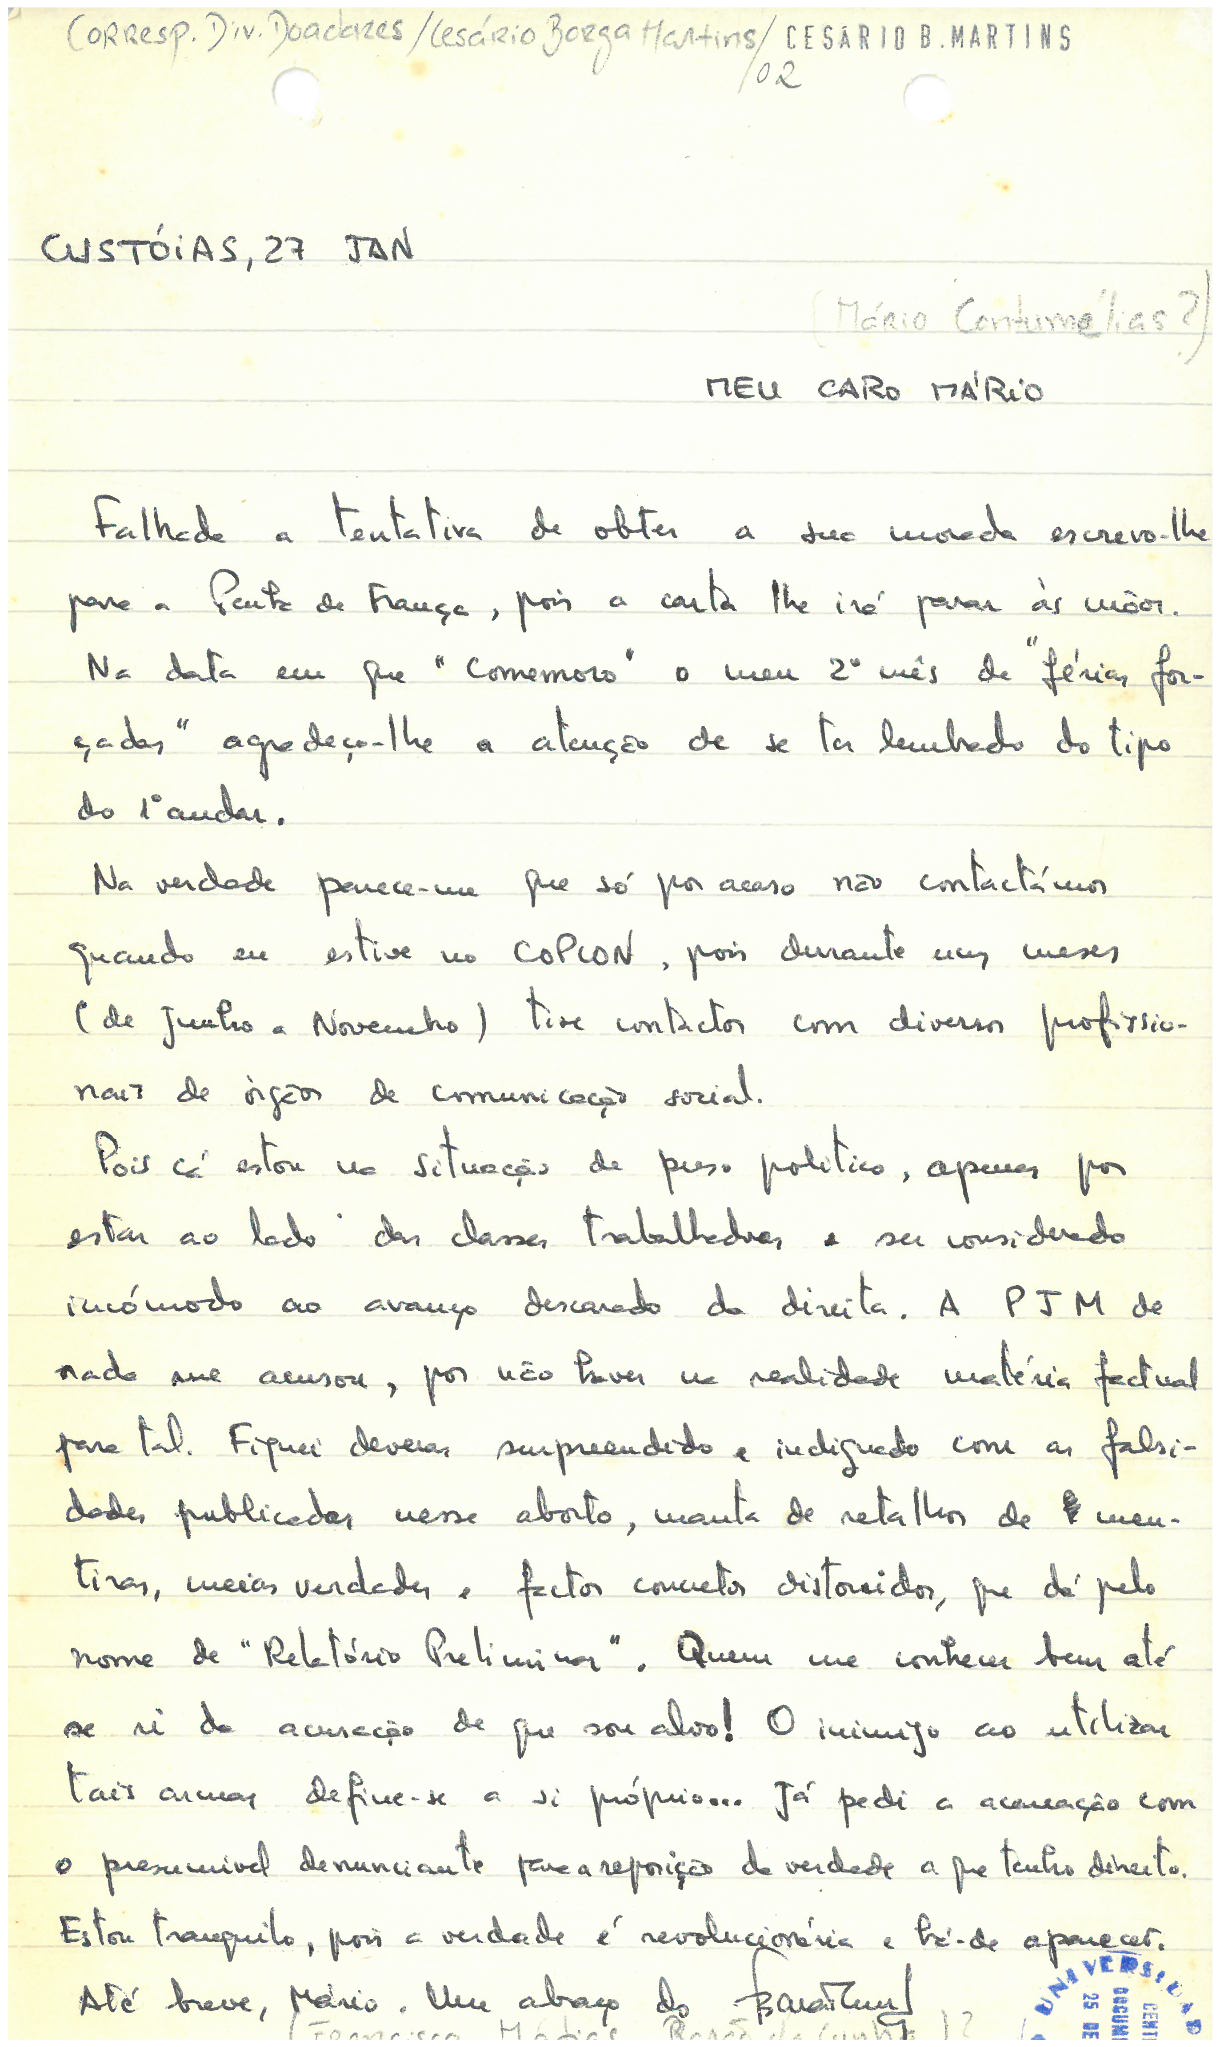 Corresp. Div. Doadores / Cesário Borga Martins / CESÁRIO B. MARTINS
/02
CUSTÓIAS, 27 JAN
(Mário Contumélias?)
MEU CARO MÁRIO
Falhada a tentativa de obter a sua morada escrevo-lhe
para a Penha de França, pois a carta lhe irá parar às mãos.
Na data em que "comemoro" o meu 2º mês de "férias for-
çadas" agradeço-lhe a atenção de se ter lembrado do tipo
do 1º andar.
Na verdade parece-me que só por acaso não contactámos
quando eu estive no COPCON, pois durante uns meses
(de Junho a Novembro) tive contactos com diversos profissio-
nais de órgãos de comunicação social.
Pois cá estou na situação de preso político, apenas por
estar ao lado das classes trabalhadoras e ser considerado
incómodo ao avanço descarado da direita. A PJM de
nada me acusou, por não haver na realidade matéria factual
para tal. Fiquei deveras surpreendido e indignado com as falsi-
dades publicadas nesse aborto, manta de retalhos de men-
tiras, meias verdades e factos concretos distorcidos, que dá pelo
nome de "Relatório Preliminar". Quem me conhece bem até
se ri da acusação de que sou alvo! O inimigo ao utilizar
tais armas define-se a si próprio... Já pedi a acareação com
o presumível denunciante para a reposição da verdade a que tenho direito.
Estou tranquilo, pois a verdade é revolucionária e há-de aparecer.
Até breve, Mário. Um abraço do
(Francisco Matias Barão da Cunha)?
UNIVERSIDAD
CENT
DOCUM
25 DE